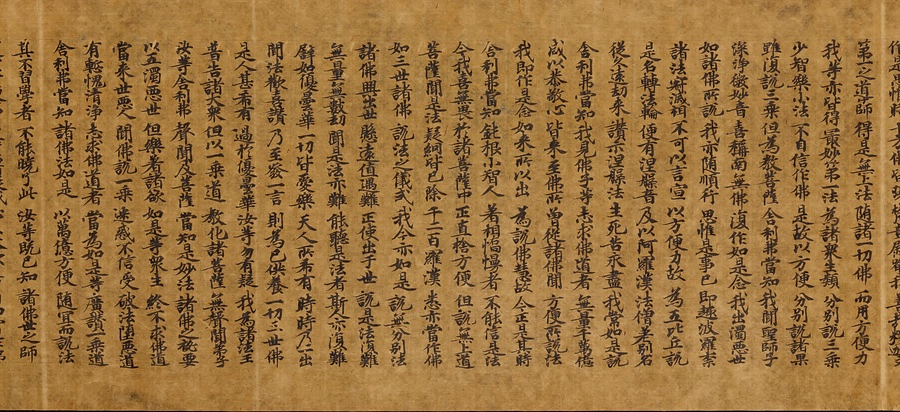 第一之導師 得是無上法 隨諸一切佛 而用方便力
我等亦皆得 最妙第一法 為諸衆生類 分別說三乘
少智樂小法 不自信作佛 是故以方便 分別說諸果
雖復說三乘 但為教菩薩 舍利弗當知 我聞聖師子
深淨微妙音 喜稱南無佛 復作如是念 我出濁惡世
如諸佛所說 我亦隨順行 思惟是事已 即趣波羅柰
諸法寂滅相 不可以言宣 以方便力故 為五比丘說
是名轉法輪 便有涅槃音 及以阿羅漢 法僧差別名
從久遠劫來 讚示涅槃法 生死苦永盡 我常如是說
舍利弗當知 我見佛子等 志求佛道者 無量千萬億
咸以恭敬心 皆來至佛所 曾從諸佛聞 方便所說法
我即作是念 如來所以出 為說佛慧故 今正是其時
舍利弗當知 鈍根小智人 著相憍慢者 不能信是法
今我喜無畏 於諸菩薩中 正直捨方便 但說無上道
菩薩聞是法 疑網皆已除 千二百羅漢 悉亦當作佛
如三世諸佛 說法之儀式 我今亦如是 說無分別法
諸佛興出世 懸遠值遇難 正使出于世 說是法復難
無量無數劫 聞是法亦難 能聽是法者 斯人亦復難
譬如優曇華 一切皆愛樂 天人所希有 時時乃一出
聞法歡喜讚 乃至發一言 則為已供養 一切三世佛
是人甚希有 過於優曇華 汝等勿有疑 我為諸法王
普告諸大衆 但以一乘道 教化諸菩薩 無聲聞弟子
汝等舍利弗 聲聞及菩薩 當知是妙法 諸佛之秘要
以五濁惡世 但樂著諸欲 如是等衆生 終不求佛道
當來世惡人 聞佛說一乘 迷惑不信受 破法墮惡道
有慙愧清淨 志求佛道者 當為如是等 廣讚一乘道
舍利弗當知 諸佛法如是 以萬億方便 隨宜而說法
其不習學者 不能曉了此 汝等既已知 諸佛世之師